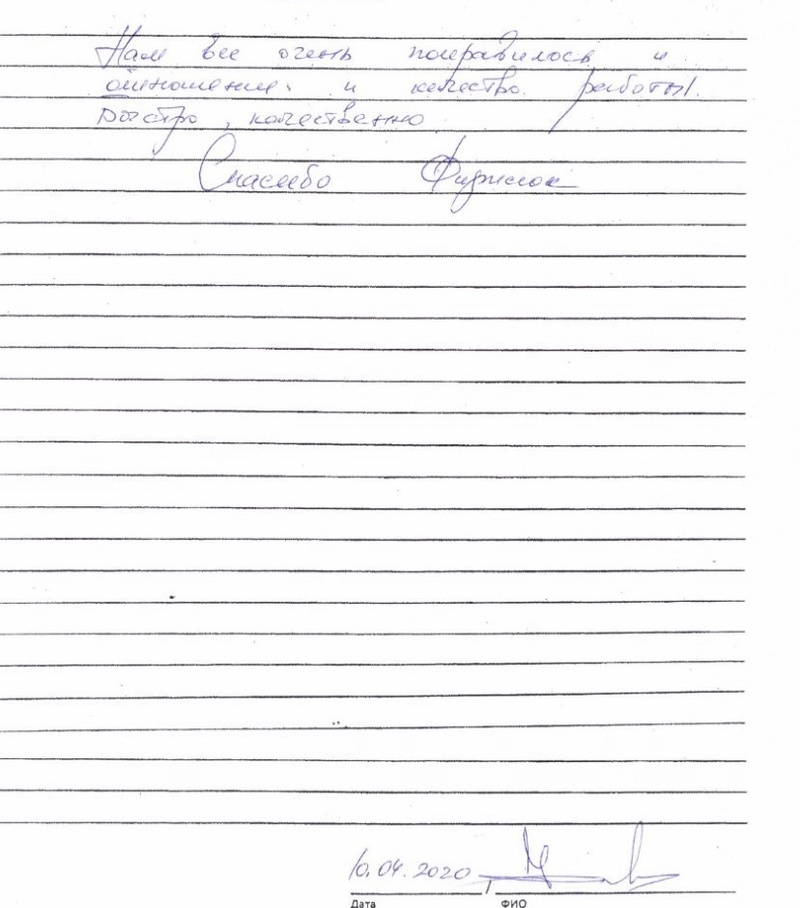 Нам все очень понравилось и
отношение и качество работы.
Быстро, качественно
Спасибо
10.04.2020
Дата ФИО